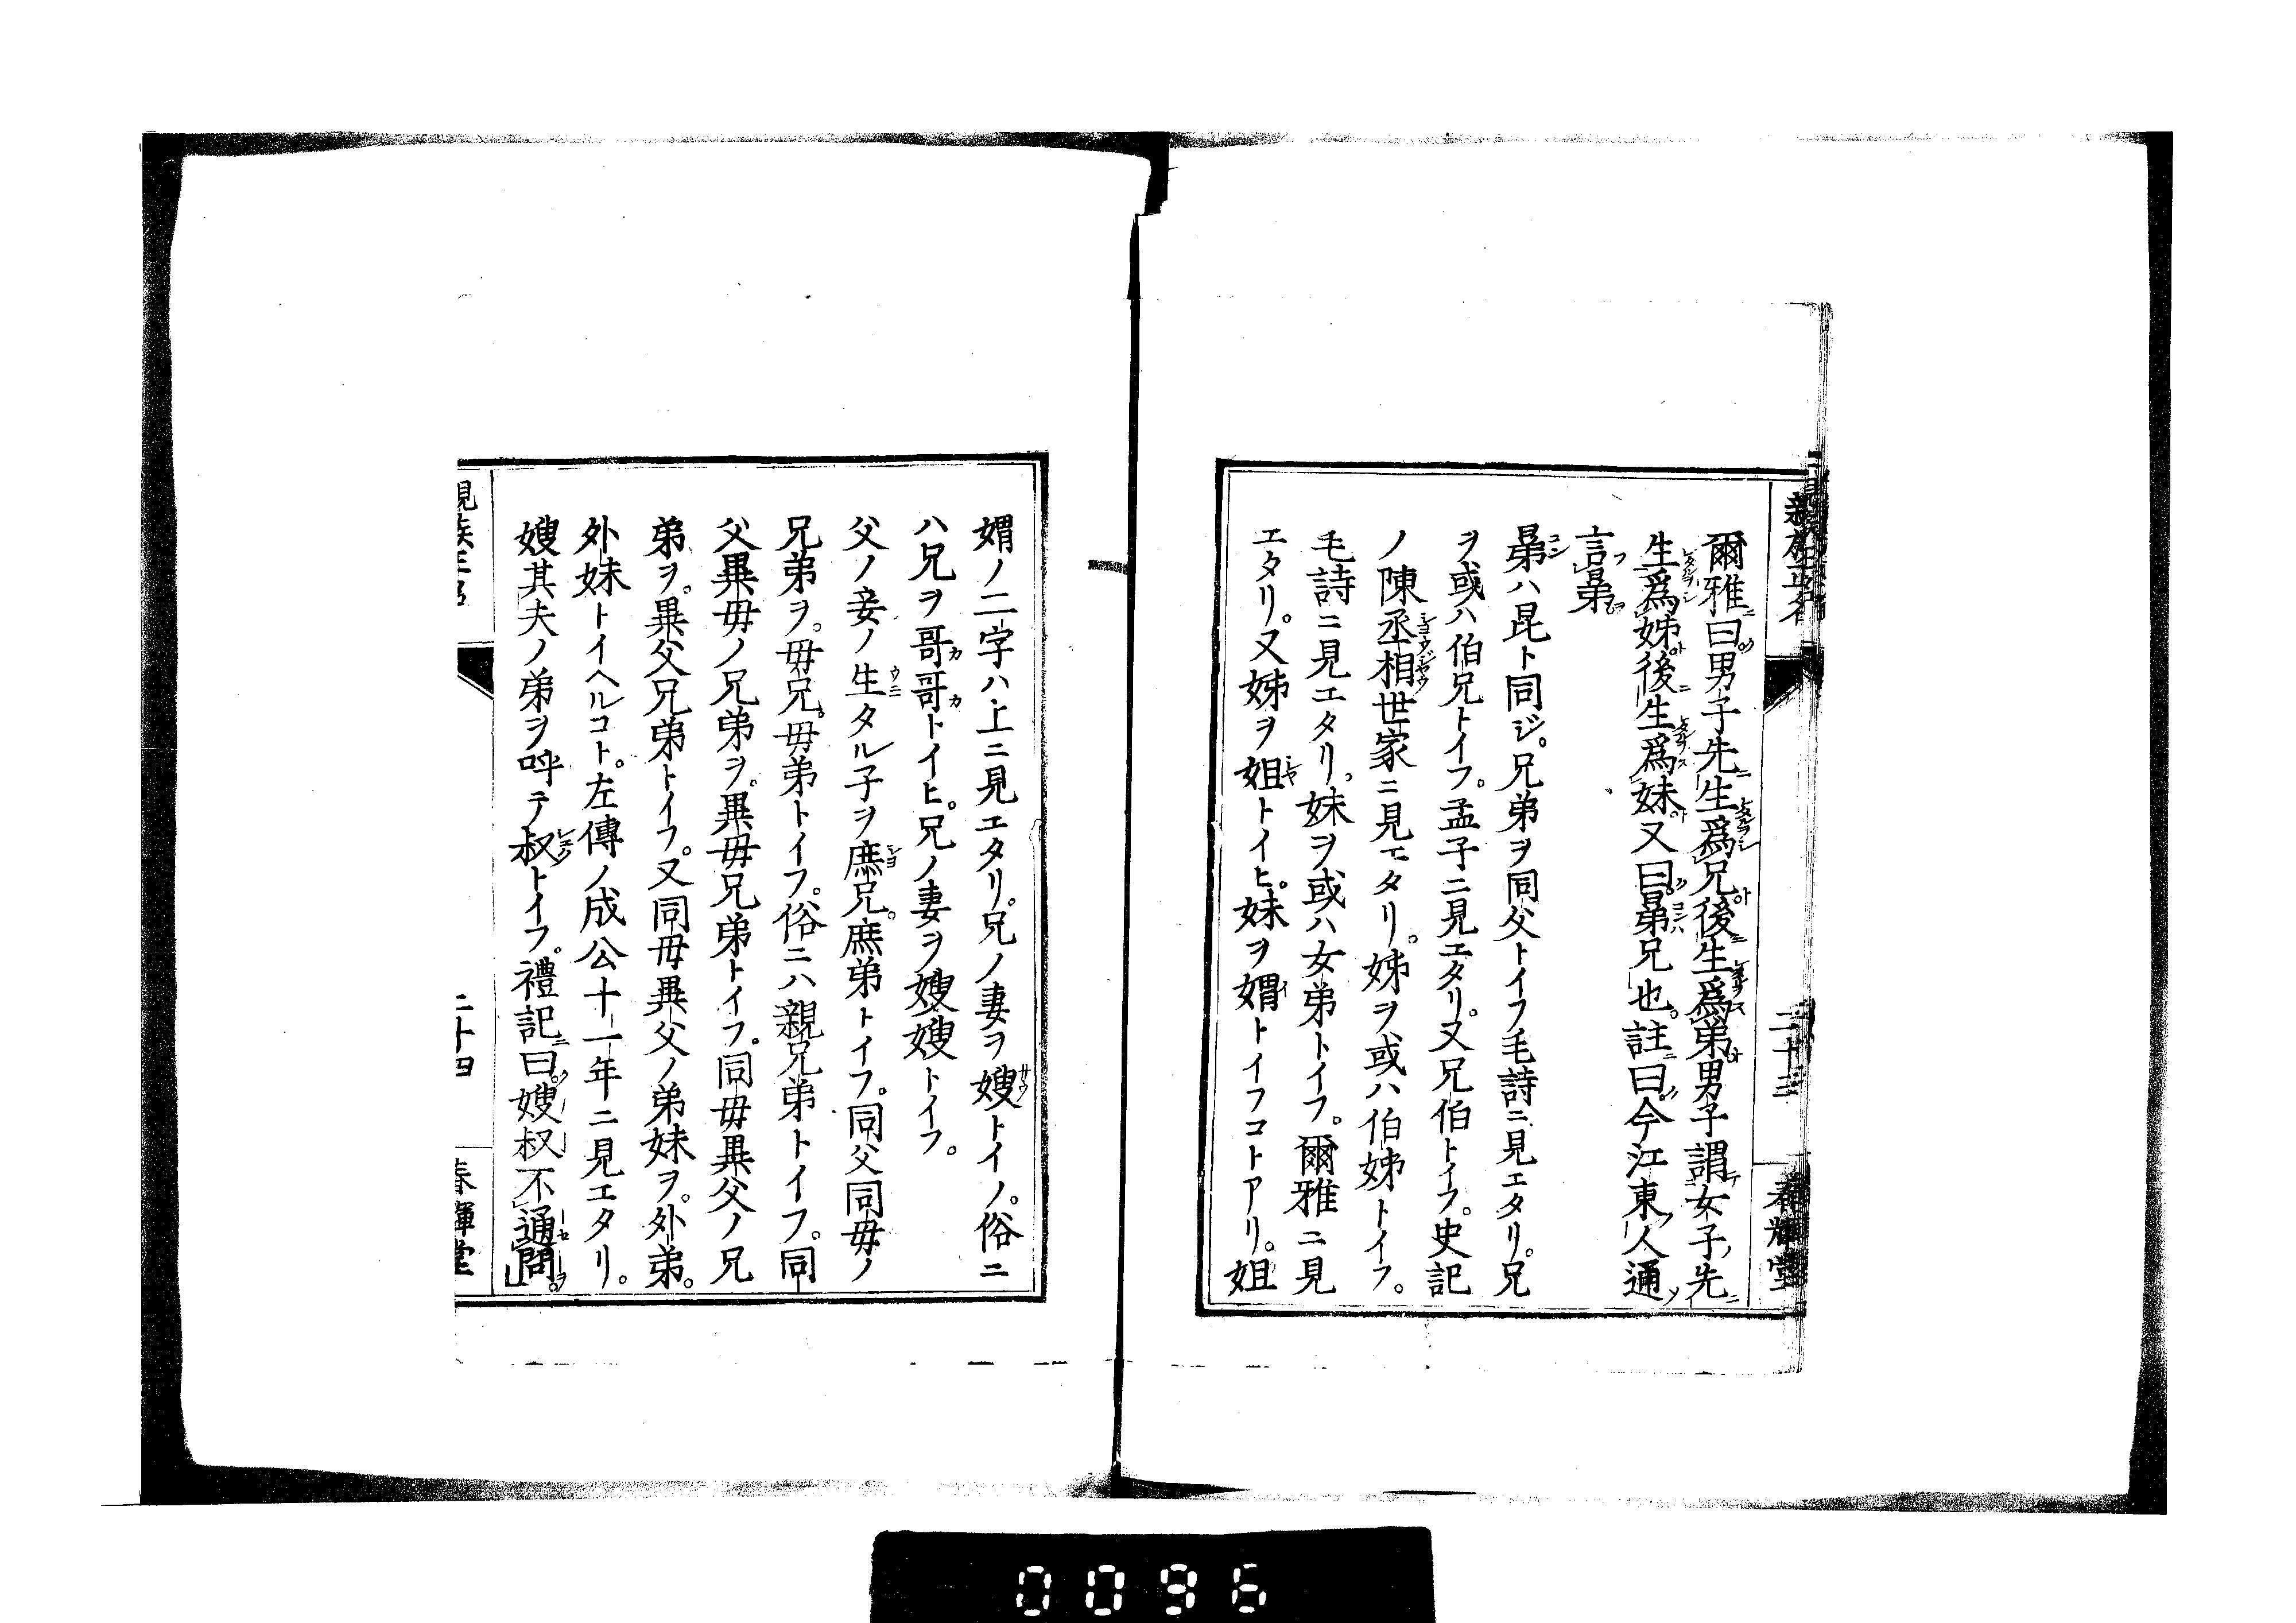 親族正名
二十三
春輝堂
爾雅曰男子先生爲兄後生爲弟男子謂女子先
生爲姊後生爲妹又曰晜兄也。註曰今江東人通
言晜
晜ハ昆ト同ジ。兄弟ヲ同父トイフ毛詩ニ見エタリ。兄
ヲ或ハ伯兄トイフ。孟子ニ見エタリ。又兄伯トイフ。史記
ノ陳丞相世家ニ見エタリ。姊ヲ或ハ伯姊トイフ。
毛詩ニ見エタリ。妹ヲ或ハ女弟トイフ。爾雅ニ見
エタリ。又姊ヲ姐トイヒ。妹ヲ媦トイフコトアリ。姐
媦ノ二字ハ上ニ見エタリ。兄ノ妻ヲ嫂トイフ。俗ニ
ハ兄ヲ哥哥トイヒ。兄ノ妻ヲ嫂嫂トイフ。
父ノ妾ノ生タル子ヲ庶兄。庶弟トイフ。同父同毋ノ
兄弟ヲ。毋兄。毋弟トイフ。俗ニハ親兄弟トイフ。同
父異毋ノ兄弟ヲ。異毋兄弟トイフ。同毋異父ノ兄
弟ヲ。異父兄弟トイフ。又同毋異父ノ弟妹ヲ。外弟。
外妹トイヘルコト。左傳ノ成公十一年ニ見エタリ。
嫂其夫ノ弟ヲ呼テ叔トイフ。禮記曰嫂叔不通問。
親族正名
二十四
春輝堂
0096